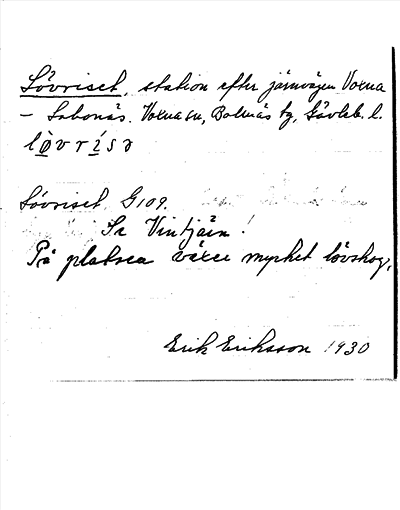 Lövriset, station efter järnvägen Voxna
– Lobonäs. Voxna sn, Bollnäs tg, Gävleb. l.
lö̀vrísə
Lövriset. G109.
Se Vintjärn!
På platsen växer mycket lövskog.
Erik Eriksson 1930